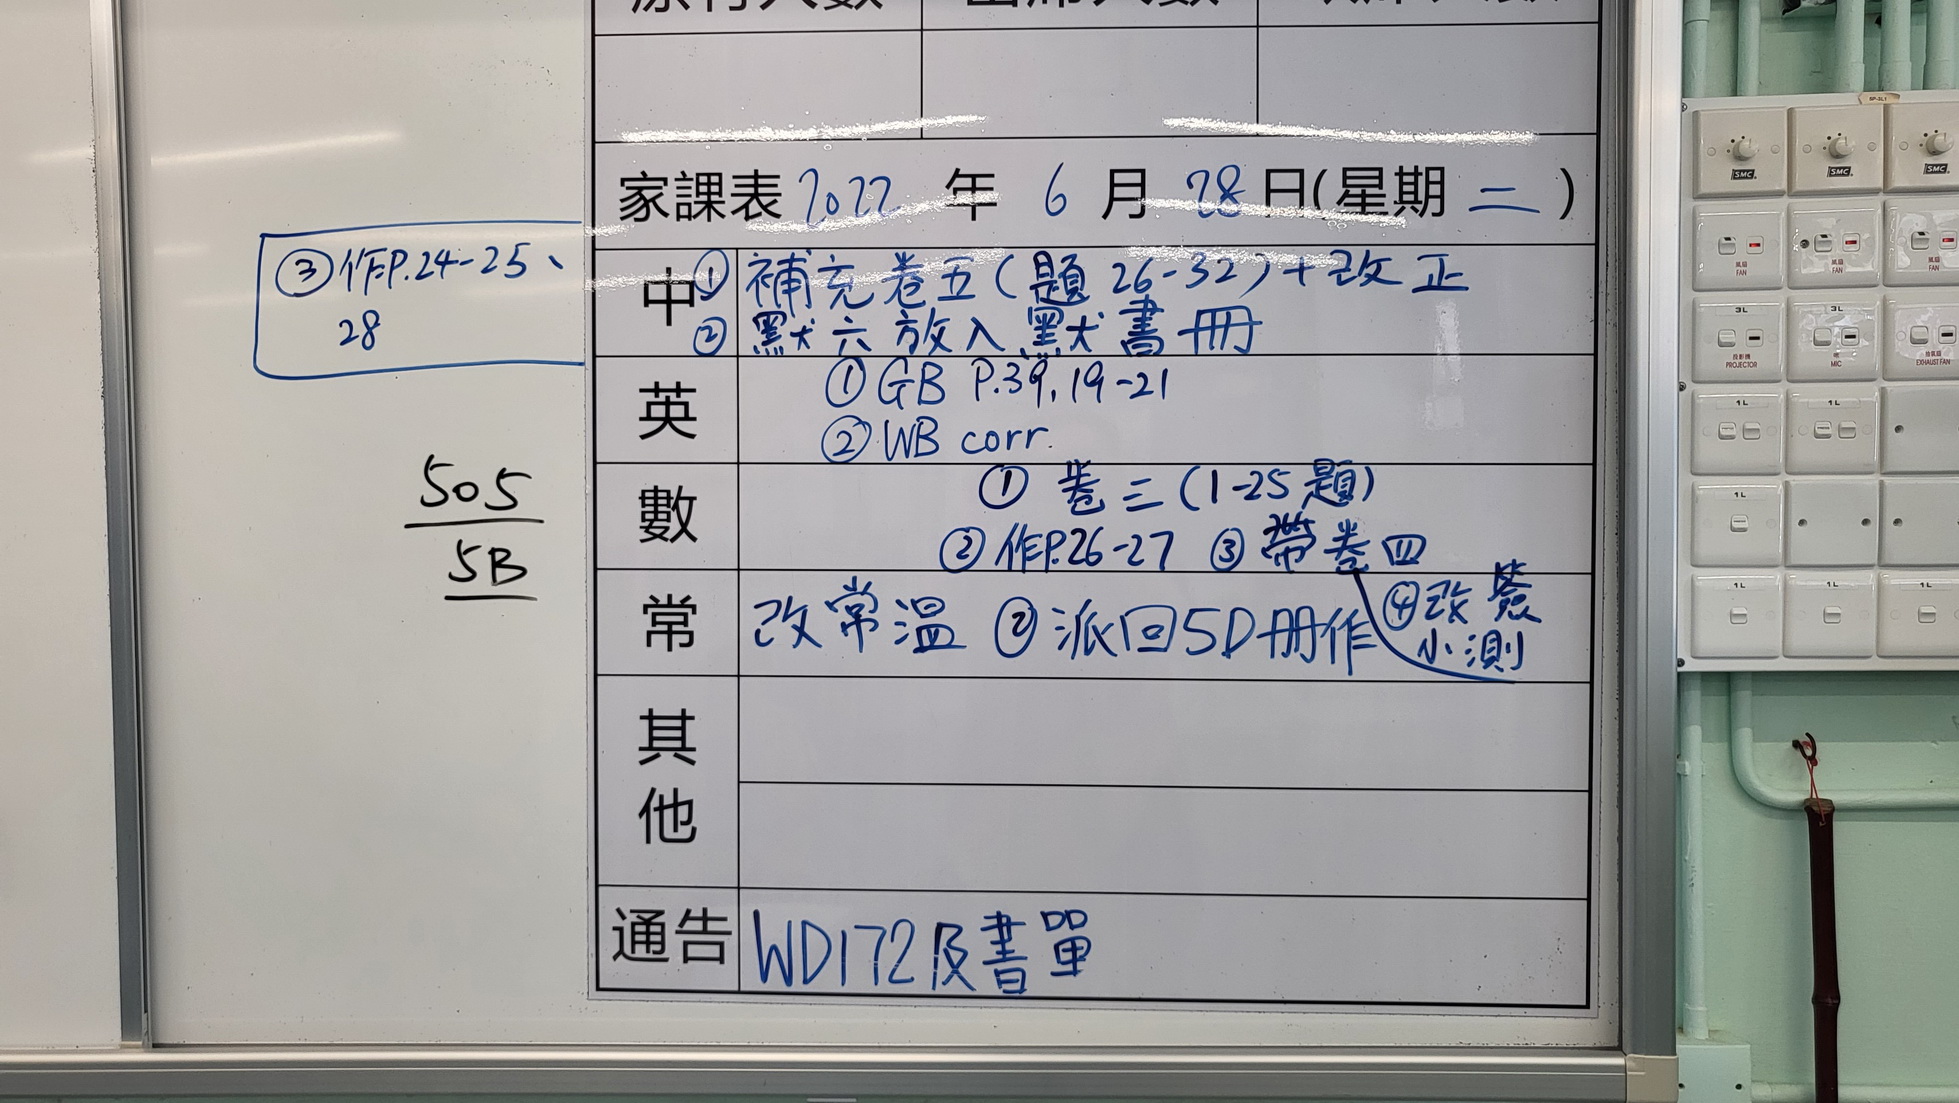 家課表 2022 年 6 月 28 日(星期 二 )
③作P.24-25、
28
中 ① 補充卷五(題 26-32)+改正
② 默六放入默書冊
英 ① GB P.39,19-21
② WB corr.
505
5B
數 ① 卷三(1-25題)
②作P.26-27 ③ 帶卷四
④改簽
小測
常 改常溫 ②派回5D冊作
其
他
通告 WD172及書單
SP-3L1
SMC SMC SMC
風扇 風扇 風扇
FAN FAN FAN
3L 3L
投影機
PROJECTOR MIC EXHAUST FAN
1L 1L
1L
1L 1L 1L